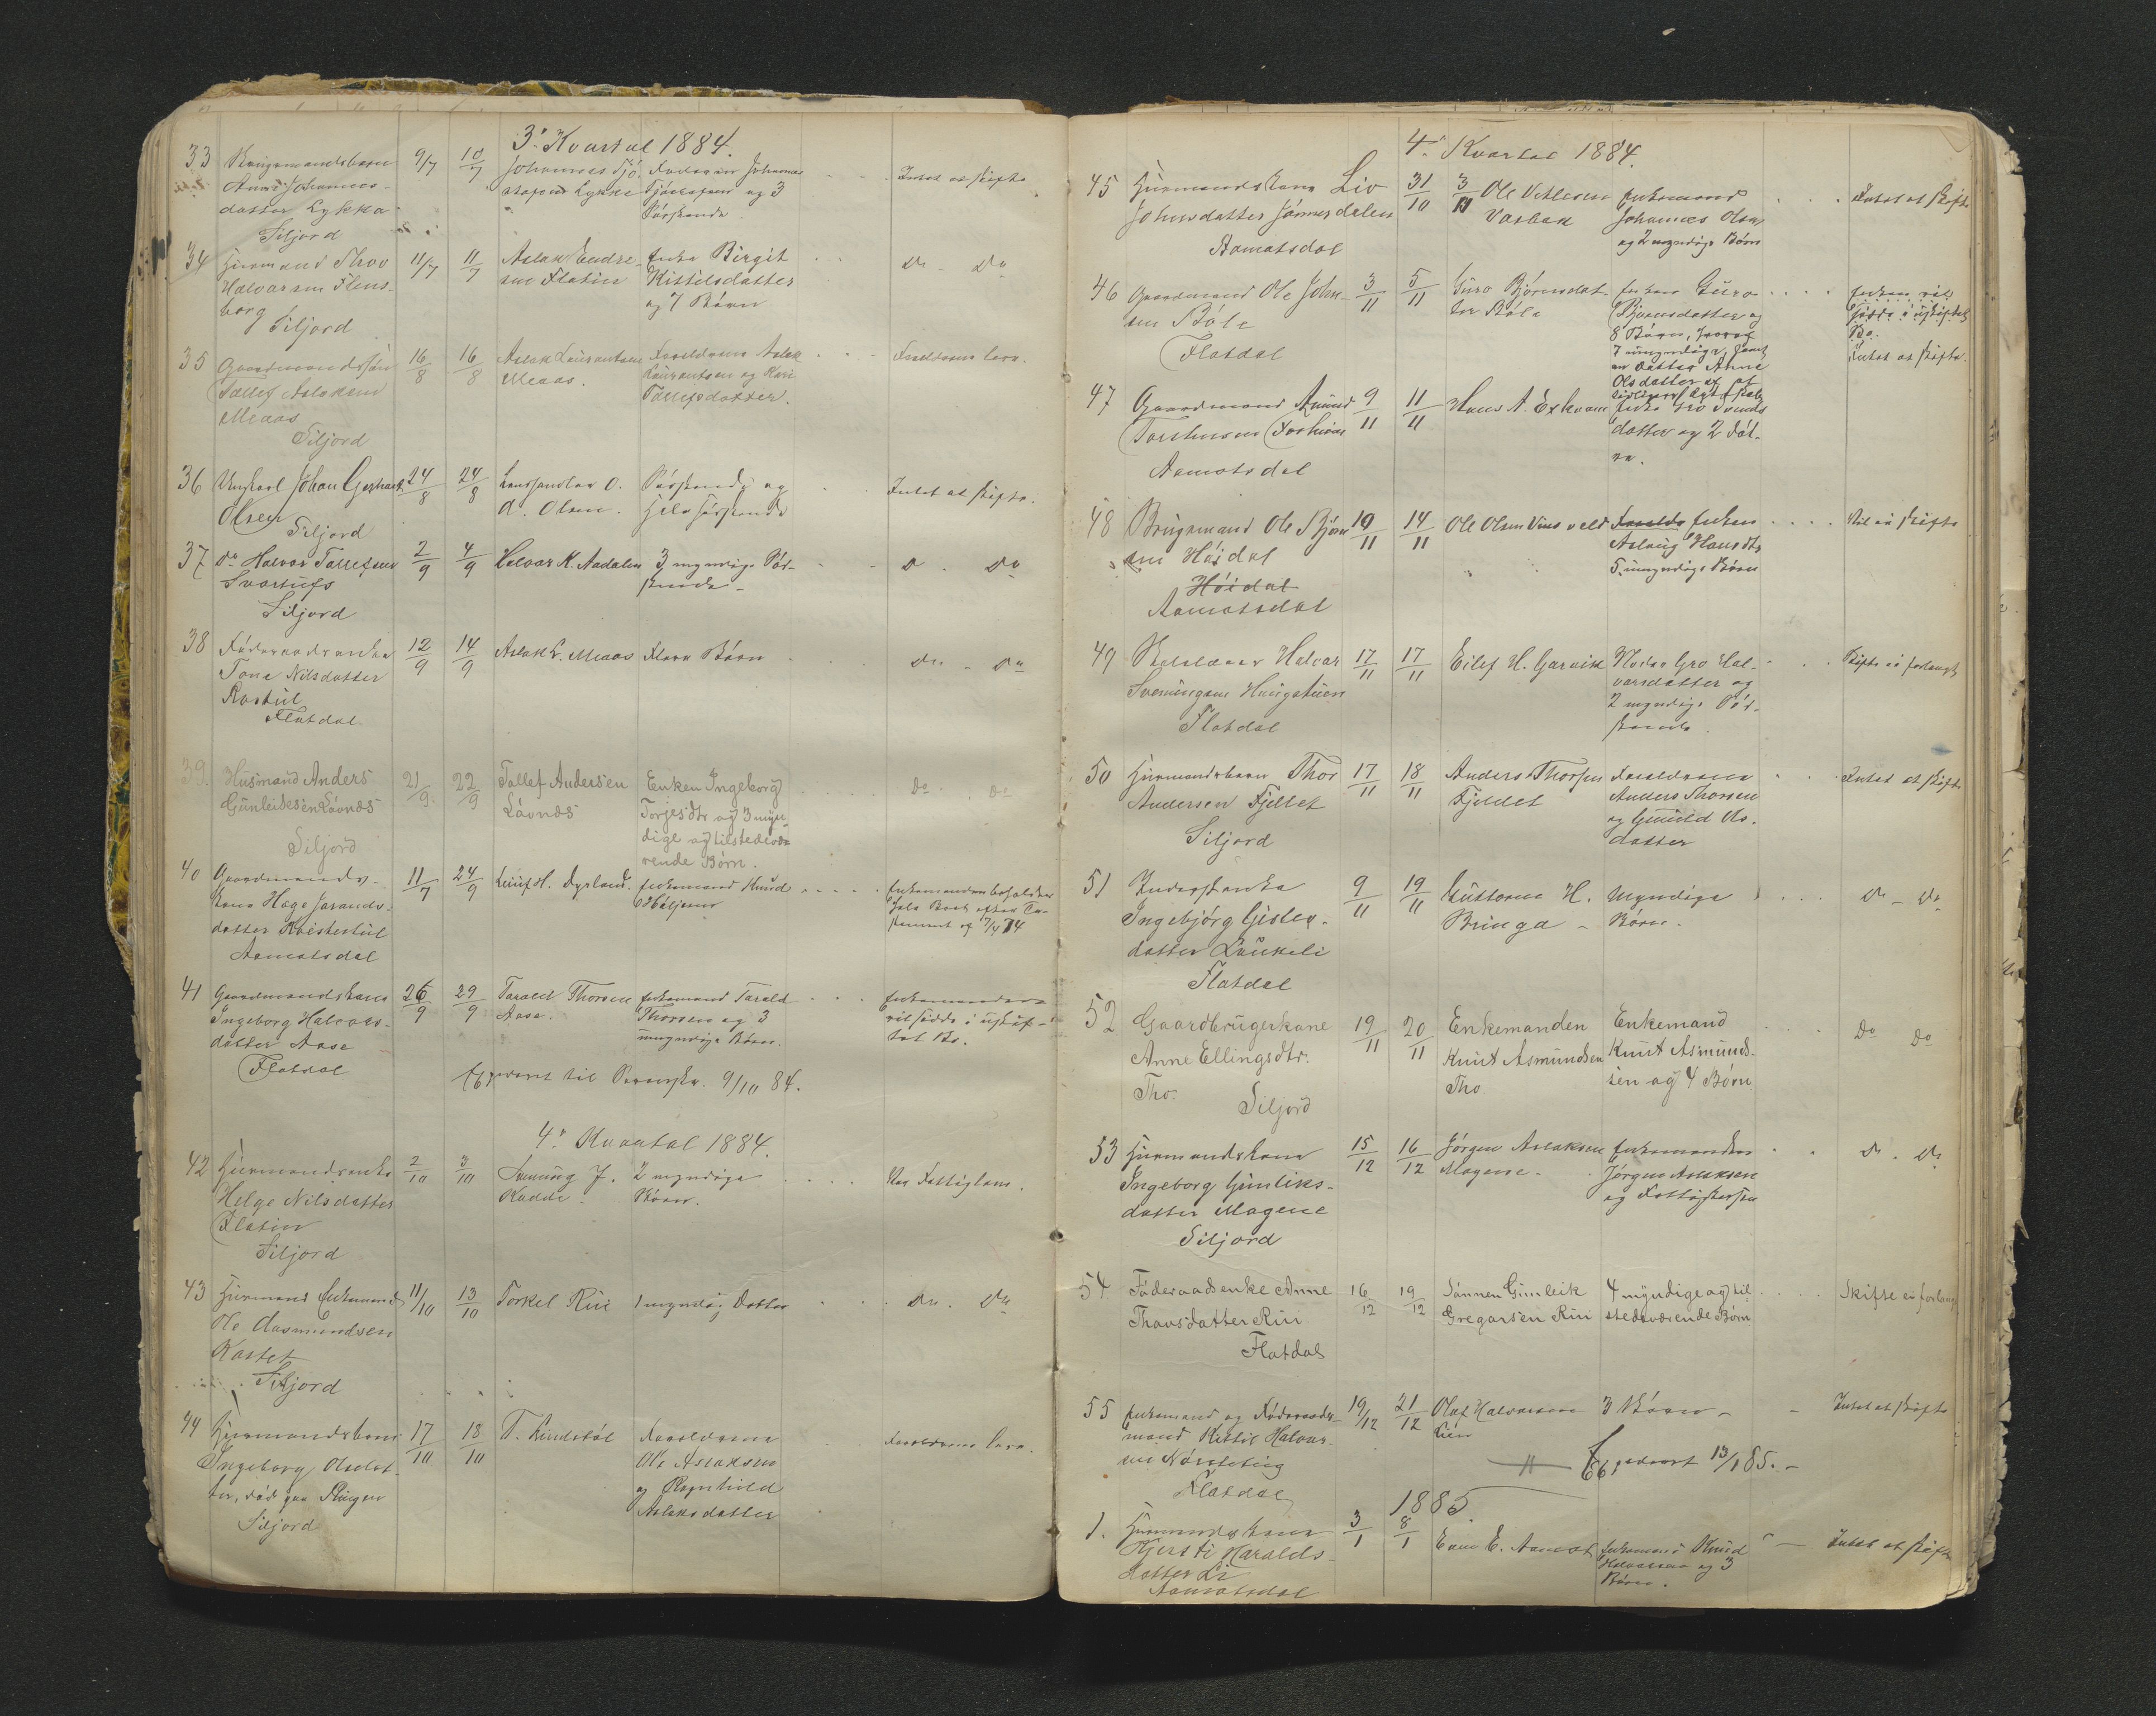 3' Kvartal 1884.
33
Brugsmandsbarn
Anne Johannes-
datter Lykkja
Siljord
9/7
10/7
Johannes Sjö-
Lykkje
Faderen Johannes
og 3
Söskende
Intet at skifte
34
Husmand Thov
Halvorsen Flens-
borg
Siljord
11/7
11/7
Aslak Endre-
sen Flatin
Enke Birgit
Kittilsdatter
og 7 Börn
Do - Do
35
Gaardmandssön
Tallef Aslaksen
Meaas
Siljord
16/8
16/8
Aslak Laurantsen
Meaas.
Forældrene Aslak
Laurantsen og Kari
Tallefsdatter.
Forældrene lever.
36
Ungkarl Johan Gerhard
Olsen
Siljord
24/8
24/8
Landhandler O.
A. Olsen.
Söskende og
Halvsöskende
Intet at skifte.
37
Do Halvor Tallefsen
Svartufs
Siljord
2/9
4/9
Halvor K. Aadalen
3 myndige Sös-
kende -
Do - Do
38
Föderaadsenke
Tone Nilsdatter
Rastul
Flatdal
12/9
14/9
Aslak L. Meaas
Flere Börn
Do - Do
39.
Husmand Anders
Gunleiksen Lövnæs
Siljord
21/9
22/9
Tallef Andersen
Lövnæs
Enken Ingeborg
Torjesdtr og 3 myn-
dige og tilstedevæ-
rende Börn.
Do Do
40
Gaardmands-
kone Hæge Sarands-
datter
Aamotsdal
11/7
24/9
Leiuf H. Dyrland.
Enkemand Knud
Höljesen
Enkemanden beholder
hele Boet efter Te-
stament af 7/4 74
41
Gaardmandskone
Ingeborg Halvors-
datter Aase
Flatdal
26/9
29/9
Tarald Thorsen
Aase.
Enkemand Tarald
Thorsen og 3
umyndige Börn.
Enkemanden
vil sidde i uskif-
tet Bo.
Opgivet til Sorensk. 9/10 84.
4' Kvartal 1884.
42
Husmandsenke
Helge Nilsdatter
Flatin
Siljord
2/10
3/10
Sveinung J.
2 myndige
Börn.
Var Fattiglem.
43
Husmand Enkemand
Ole Aasmundsen
Kastet
Siljord
11/10
13/10
Torkel Rui
1 myndig Datter
Do - Do
44
Husmandsbarn
Ingeborg Olsdat-
ter, död paa Ringen
Siljord
17/10
18/10
T. Lindstöl
Forældrene
Ole Aslaksen
og Ragnhild
Aslaksdatter
Forældrene lever.
4' Kvartal 1884.
45
Husmandskone Liv
Johnsdatter Jönnesdalen
Aamotsdal
31/10
3/11
Ole Vetlesen
Vaslak
Enkemand
Johannes Olsen
og 2 myndige Börn
Intet at skifte
46
Gaardmand Ole John-
sen Böle
Flatdal
3/11
5/11
Guro Björnsdat-
ter Böle
Enken Guro
Björnsdatter og
8 Börn, hvoraf
7 umyndige, samt
en Datter Anne
Olsdatter af et
tidligere Ægteskab
Enken vil
sidde i uskiftet
Bo.
Intet at skifte.
47
Gaardmand Amund
Torstensen
Aamotsdal
9/11
11/11
Hans A. Exkvam
Enke Gro Svends-
datter og 2 Döt-
re.
48
Brugsmand Ole Björn-
sen Höidal
Höidal
Aamotsdal
10/11
14/11
Ole Olsen
Enken
Aslaug Hansdtr
5 umyndige Börn
Vil ei skifte
49
Halvor
Sveinungsen Haugstuen
Flatdal
17/11
17/11
Eilef H. Garvik
Moder Gro Hal-
vorsdatter og
2 myndige Sös-
kende
Skifte ei forlangt
50
Husmandsbarn Thor
Andersen Fjellet
Siljord
17/11
18/11
Anders Thorsen
Fjeldet
Forældrene
Anders Thorsen
og Gunild As-
datter
Intet at skifte
51
Inderstenke
Ingebjörg Gisles-
datter Laukeli
Flatdal
9/11
19/11
Guttorm H.
Bringa -
Myndige
Börn.
Do - Do
52
Gaardbrugerkone
Anne Ellingsdtr.
Tho.
Siljord
19/11
20/11
Enkemanden
Knut Asmundsen
Tho
Enkemand
Knut Asmund-
sen og 4 Börn
Do Do
53
Husmandskone
Ingeborg Gunliks-
datter Mogene
Siljord
15/12
16/12
Jörgen Aslaksen
Mogene -
Enkemanden
Jörgen Aslaksen
og
Do - Do
54
Föderaadsenke Anne
Thovsdatter Rui
Flatdal
16/12
19/12
Sönnen Gunleik
Gregarsen Rui
4 myndige og til-
stedeværende Börn
Skifte ei forlangt
55
Enkemand og Föderaads-
mand Kittil Halvor-
sen Nörsteteig
Flatdal
19/12
21/12
Olaf Halvorsen
Lien
3 Börn -
Intet at skifte
Opgivet 13/1 85. -
1885.
1.
Husmandskone
Kjersti Haralds-
datter Li
Aamotsdal
3/1
8/1
Even E. Aamot
Enkemand Knud
Halvorsen og 3
Börn.
Intet at skifte